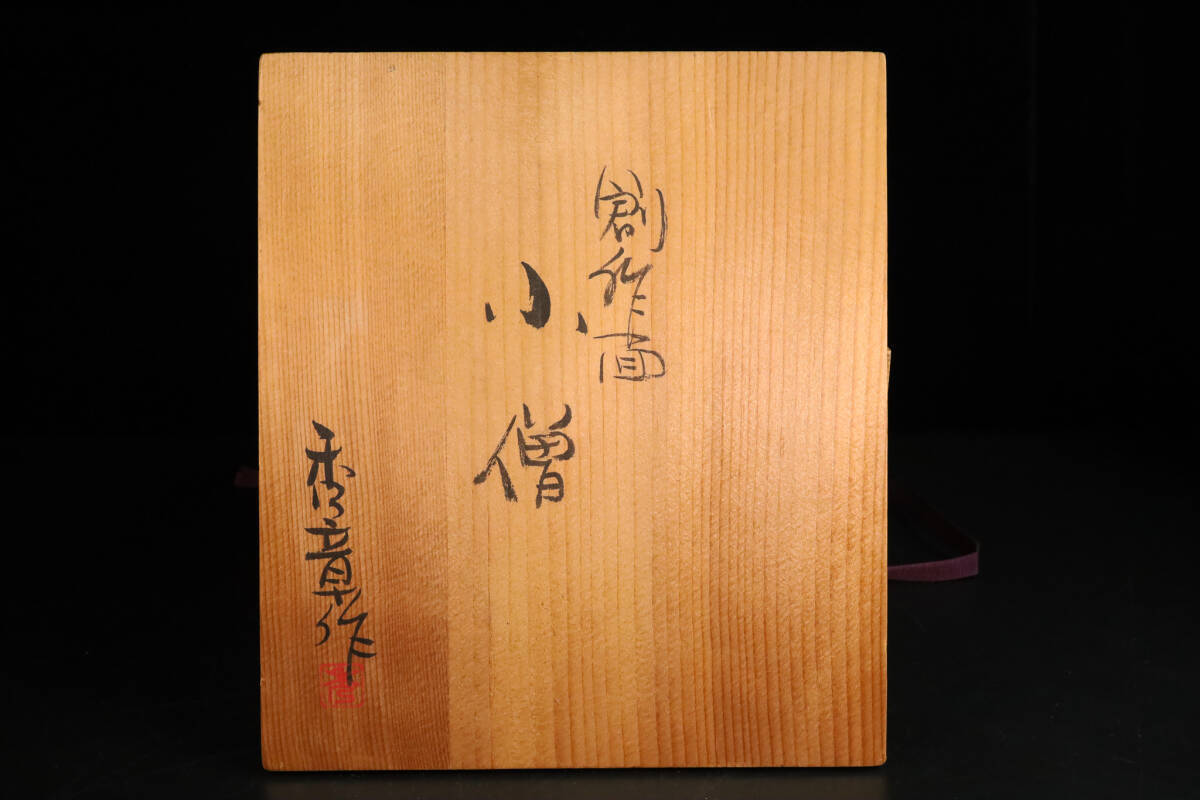 創作面
小僧
秀章作